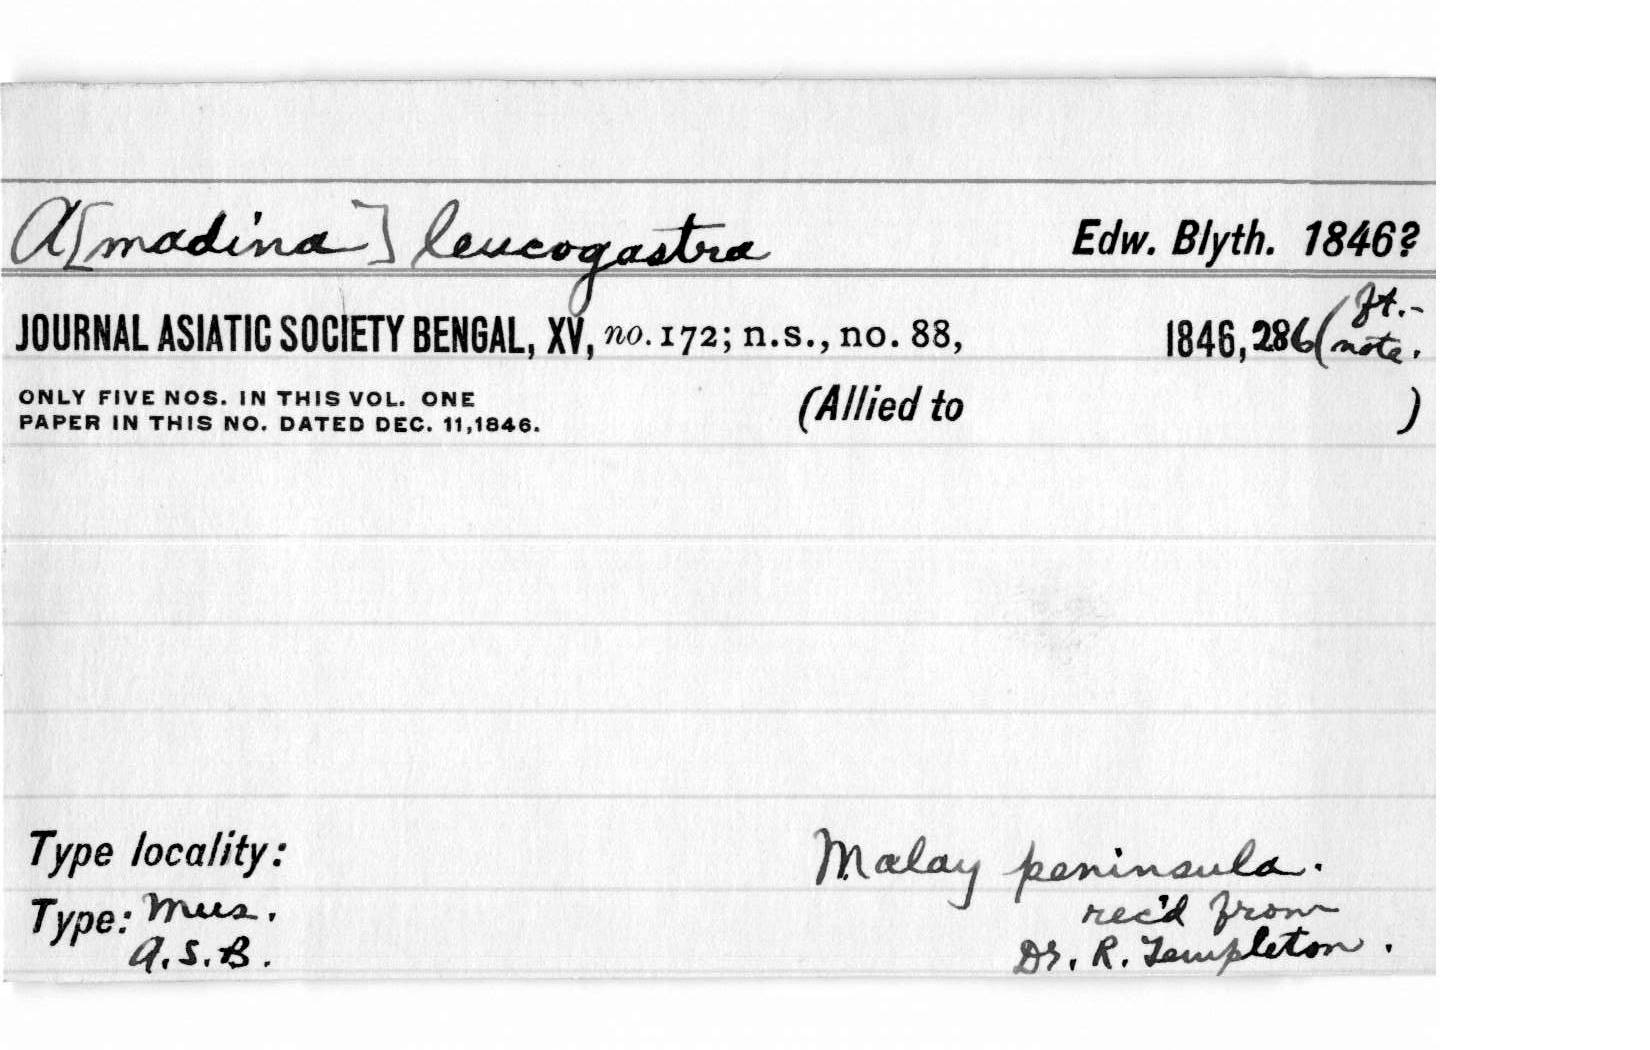 A[madina] leucogastra Edw. Blyth. 1846?
JOURNAL ASIATIC SOCIETY BENGAL, XV, no. 172; n.s., no. 88, 1846, 286 (ft.-
note.
ONLY FIVE NOS. IN THIS VOL. ONE
PAPER IN THIS NO. DATED DEC. 11, 1846.
(Allied to )
Type locality: Malay peninsula.
Type: Mus. rec'd from
A.S.B. Dr. R. Templeton.